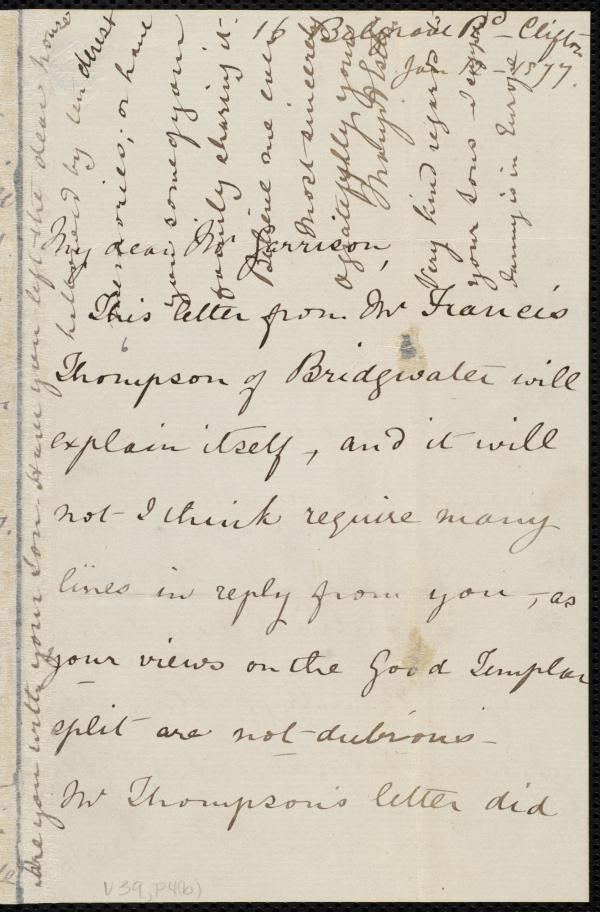 16 Belgrave Rd - Clifton
Jan 1877.
My dear Mr Garrison,
This letter from Mr Francis
Thompson of Bridgwater will
explain itself, and it will
not I think require many
lines in reply from you, as
your views on the Good Templar
split are not dubious -
Mr Thompson's letter did
Are you with your Son. Have you left the dear house
hallowed by tenderest
memories; or have
you some of your
family sharing it.
Believe me ever
Most sincerely
& gratefully yours
Mary A Estlin
Very kind regards
your sons - I suppose
Fanny is in Europe
V39, P4(b)